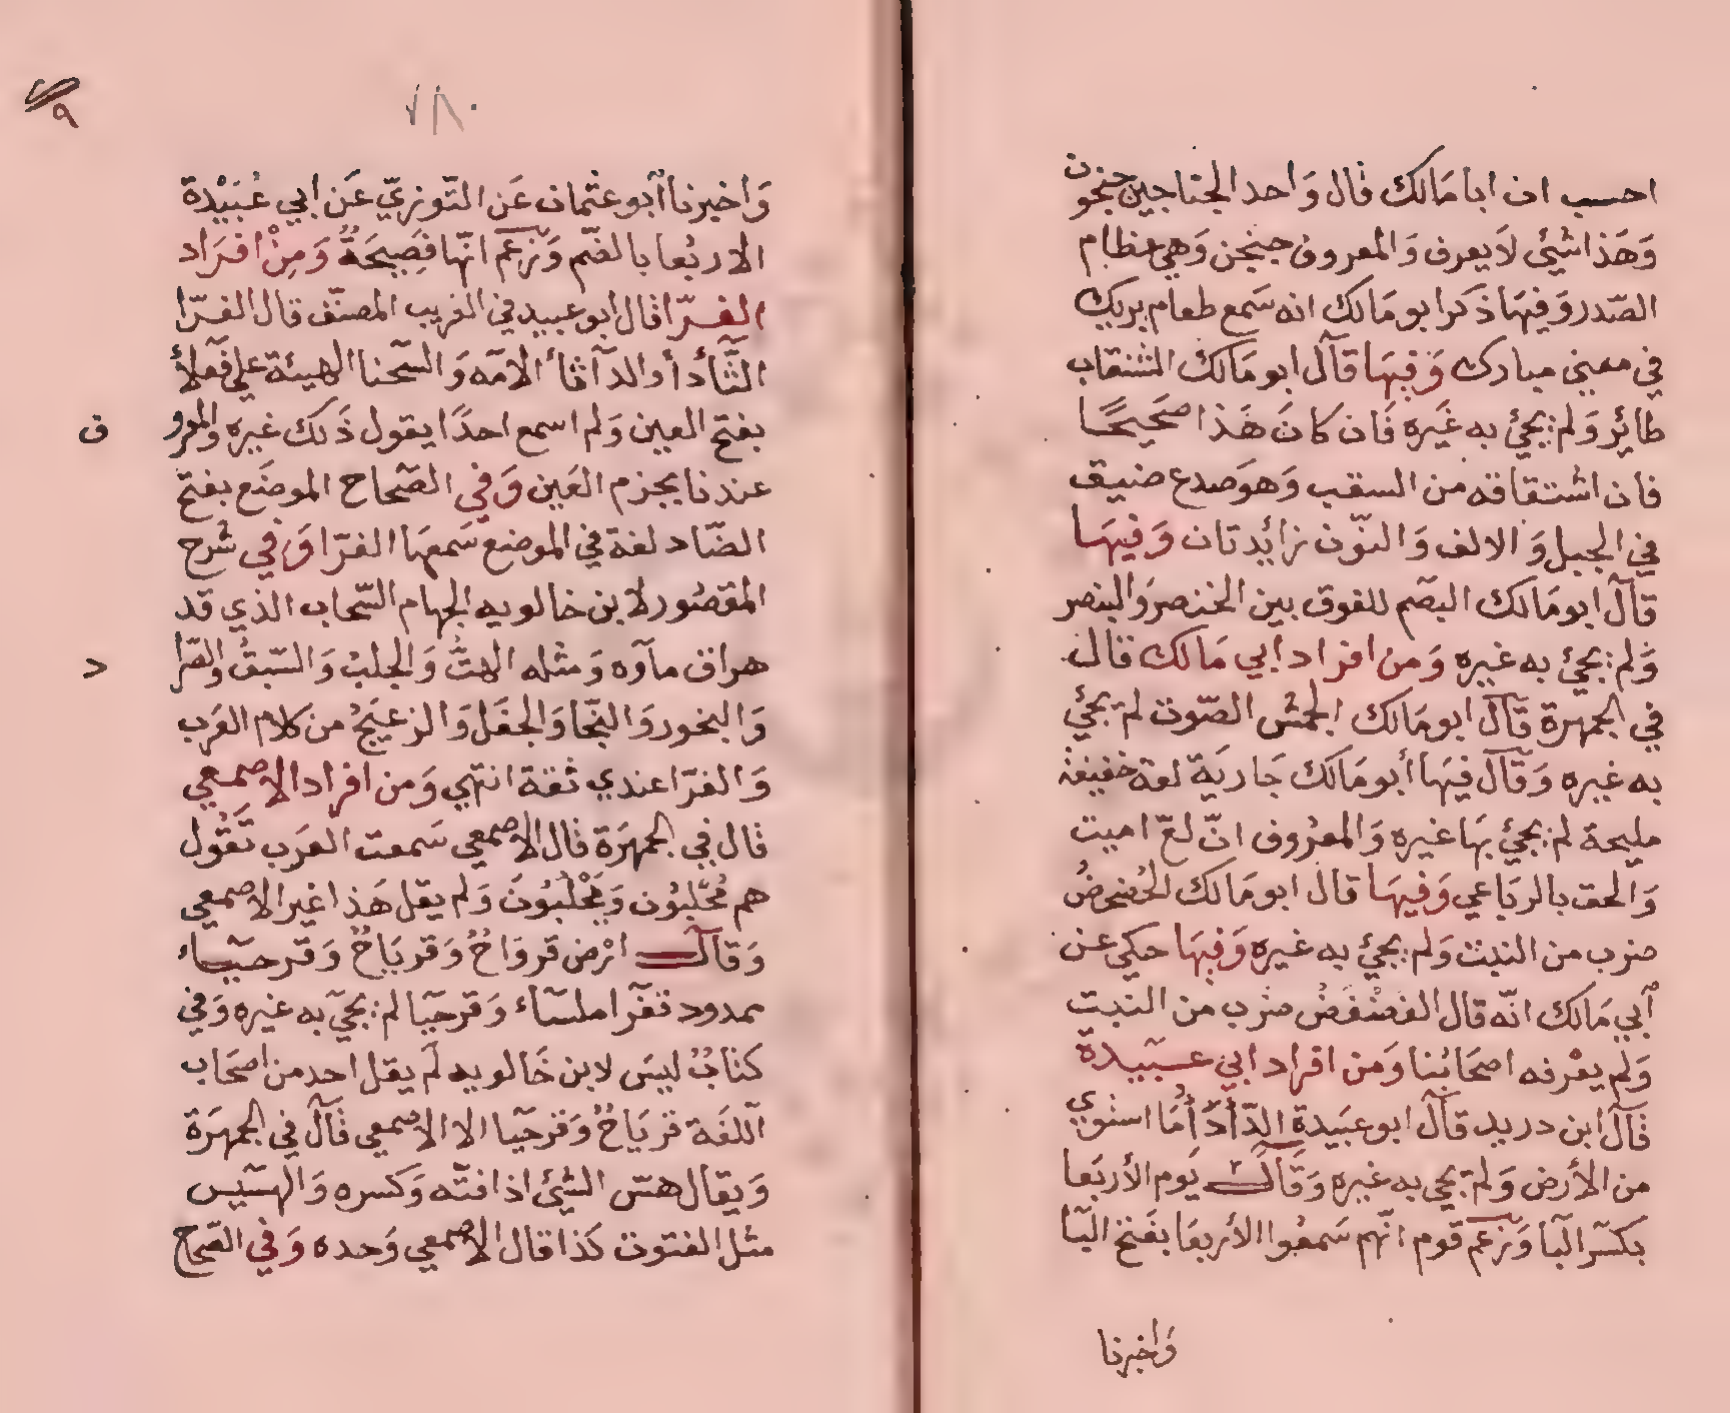 احسب ان ابا مَالك قال وَاحد الجناجين جنجون
وَهَذا شيئ لاَ يعرف وَالمعروف جنجن وَهي عظام
الصّدر وَفيهَا ذَكر ابو مَالك انه سَمع طعام بريك
في معني مبارك وَفيهَا قآل ابو مَالك الشنقاب
طائِر وَلم يجيُ به غَيره فَان كانَ هَذا صَحيحًا
فان اشتقاقه من السقب وَهوَ صدع ضيق
في الجبل وَالالف وَالنّون زايُدتان وَفيهَا
قآل ابو مَالك البصَم للفوق بين الخنصر وَالبنصر
وَلم يجيُ به غيره وَمن افراد ابي مَالك قال
في الجمهرة قآل ابو مَالك الجمش الصّوت لم يجيُ
به غيره وَقآل فيهَا أبو مَالك جَاريَة لعة خفيفة
مليحة لم يجيُ بهَا غيره وَالمعرُوف انّ لعّ اميت
وَالحق بالربَاعي وَفيهَا قال ابو مَالك الحُضحضُ
ضرب من النبت وَلم يجيُ به غيره وَفيهَا حكي عن
أبي مَالك انّه قال الغضْغضُ ضرب من النبت
وَلم يعْرفه اصحَابُنا وَمن افراد ابي عبَيدة
قآل ابن دريد قآل ابو عبَيدة الدّأدَأُمَا استوي
من الأرض وَلم يجي به غيره وَقآل يَوم الأربَعا
بكسَر البآ وَزعم قوم انّهم سَمعُوا الأربعَا بفَتح البآ
وَاخبرنا
٧٨٠
٩
وَاخبرنا آبو عثمان عَن التّوزيّ عَن ابي عُبَيْدة
الاربُعا بالضّم وَزعَم انّها فصِيحَةٌ وَمِنْ افرَاد
الفرّا قال ابو عبيد في الغريب المصنّف قال الفرّا
الثّأدأ والدآثأ الامَه وَالسّحنا الهيئة علي فَعلأ
بفتح العين وَلم اسمع احدًا يقول ذَلك غيره والمعرو
ف
عندنا بجزم العَين وَفي الصّحاح الموضَع بفتح
الضّاد لغة في الموضع سَمعهَا الفرّا وَفي شرح
المقصُور لابن خالويه الجهام السّحاب الذي قد
هراق مآوه وَمثله الهثُّ وَالجلبُ وَالسّبقُ والصّرا
د
وَالبخور وَالنّجا وَالجفَل وَالزعبَجُ من كلام العَرب
وَالفرّا عندي ثقة انتهي وَمن افراد الاصمعي
قال في الجمهَرَة قال الاصمعي سَمعت العَرب تَقُول
هم مُحْلِبُون وَيَحْلبُونَ وَلم يقل هَذا غير الاصمعي
وَقآل ارْض قروَاحٌ وَقريَاحٌ وَقرحيَاء
ممدود تقفرا ملساء وَقرحيَا لم يجيَ به غيره وَفي
كتابُ ليسَ لابن خَالويه لَم يقل احد من اصحَاب
آللغَة قريَاحٌ وَقرحيَا الا الاصمعي قآل في الجمهَرَة
وَيقال هسّ الشيُ اذا فتّه وَكسره وَالهسَيس
مثل الفتوت كَذا قال الاصمعي وَحده وَفي الصّحاح